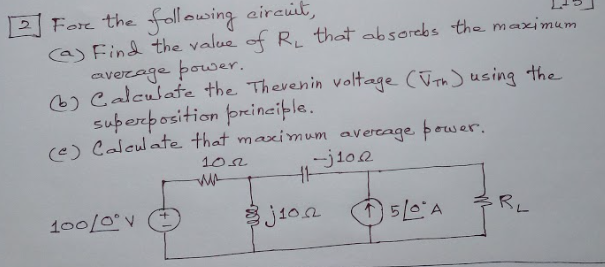 [15]
2 For the following circuit,
(a) Find the value of RL that absorbs the maximum
average power.
(b) Calculate the Thevenin voltage (V̄Th) using the
superposition principle.
(c) Calculate that maximum average power.
10Ω -j10Ω
100∠0° V + - j10Ω ↑ 5∠0° A RL